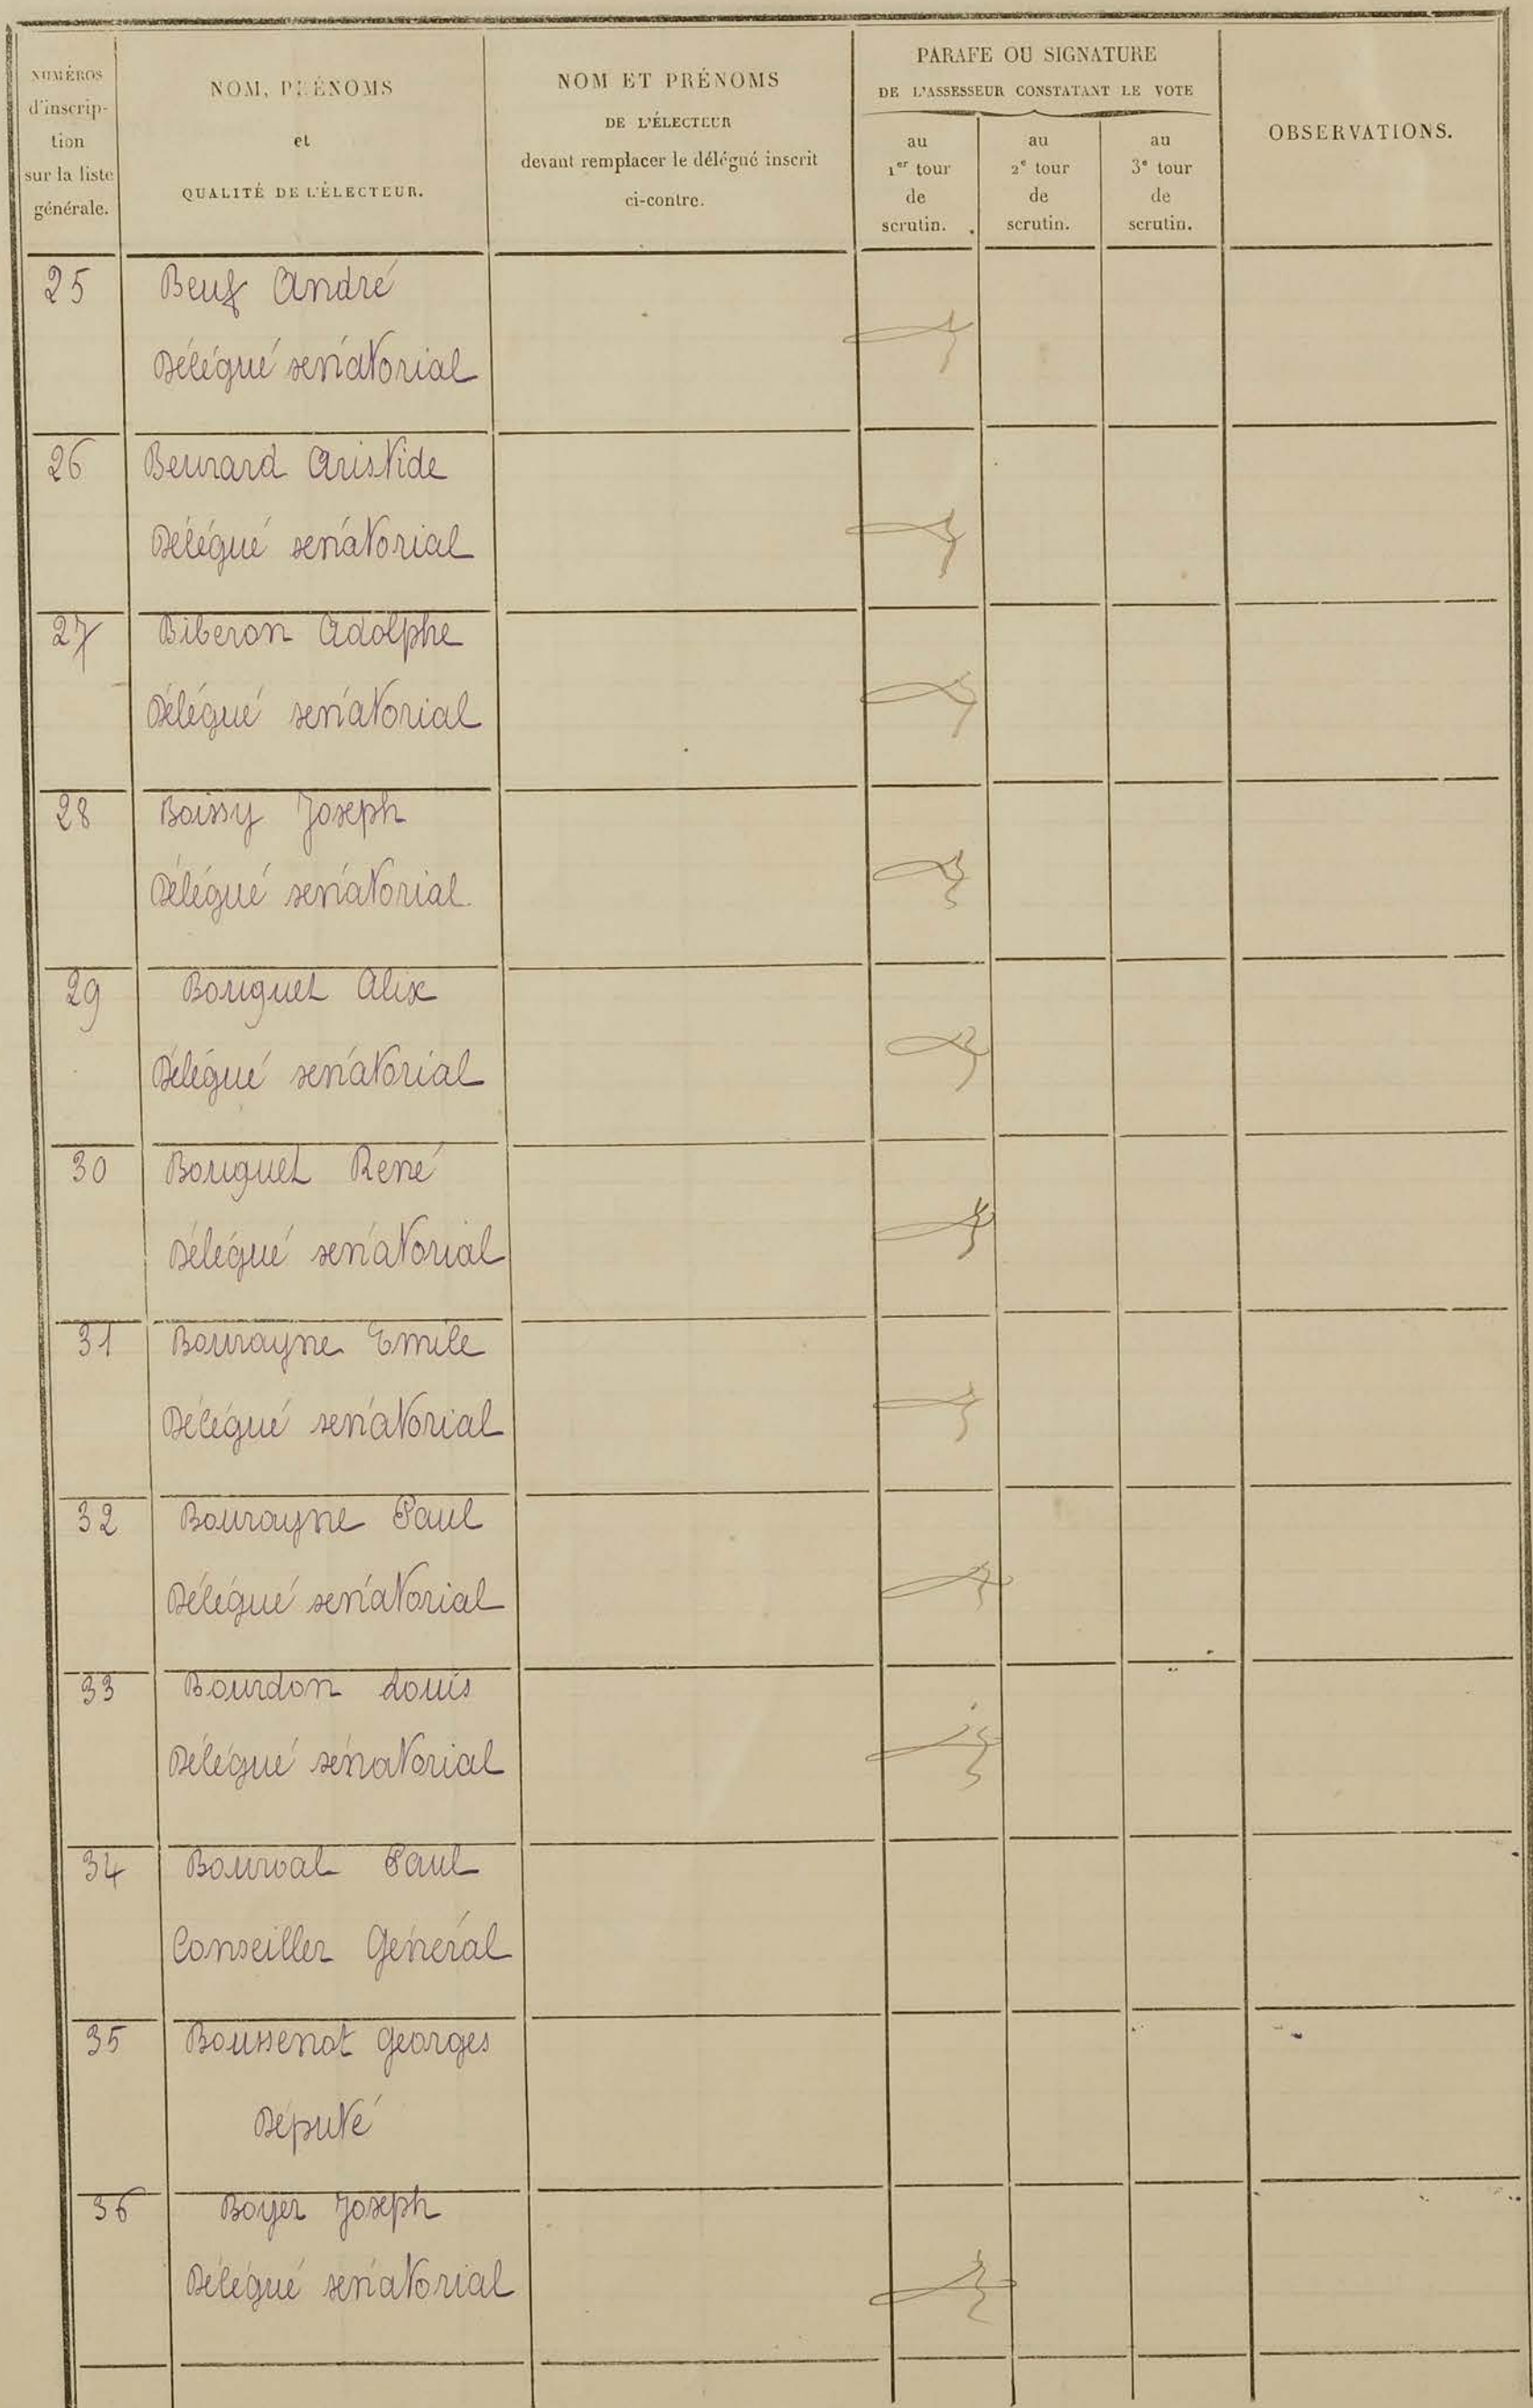 NUMÉROS
d'inscrip-
tion
sur la liste
générale.
NOM, PRÉNOMS
et
QUALITÉ DE L'ÉLECTEUR.
NOM ET PRÉNOMS
DE L'ÉLECTEUR
devant remplacer le délégué inscrit
ci-contre.
PARAFE OU SIGNATURE
DE L'ASSESSEUR CONSTATANT LE VOTE
au
1er tour
de
scrutin.
au
2e tour
de
scrutin.
au
3e tour
de
scrutin.
OBSERVATIONS.
25 Beuf André
Délégué sénatorial
26 Beurard Aristide
Délégué sénatorial
27 Biberon Adolphe
Délégué sénatorial
28 Boissy Joseph
Délégué sénatorial
29 Bouquet Alix
Délégué sénatorial
30 Bouquet René
Délégué sénatorial
31 Bourayne Emile
Délégué sénatorial
32 Bourayne Paul
Délégué sénatorial
33 Bourdon Louis
Délégué sénatorial
34 Paul
Conseiller Général
35 Boussenot Georges
Député
36 Boyer Joseph
Délégué sénatorial